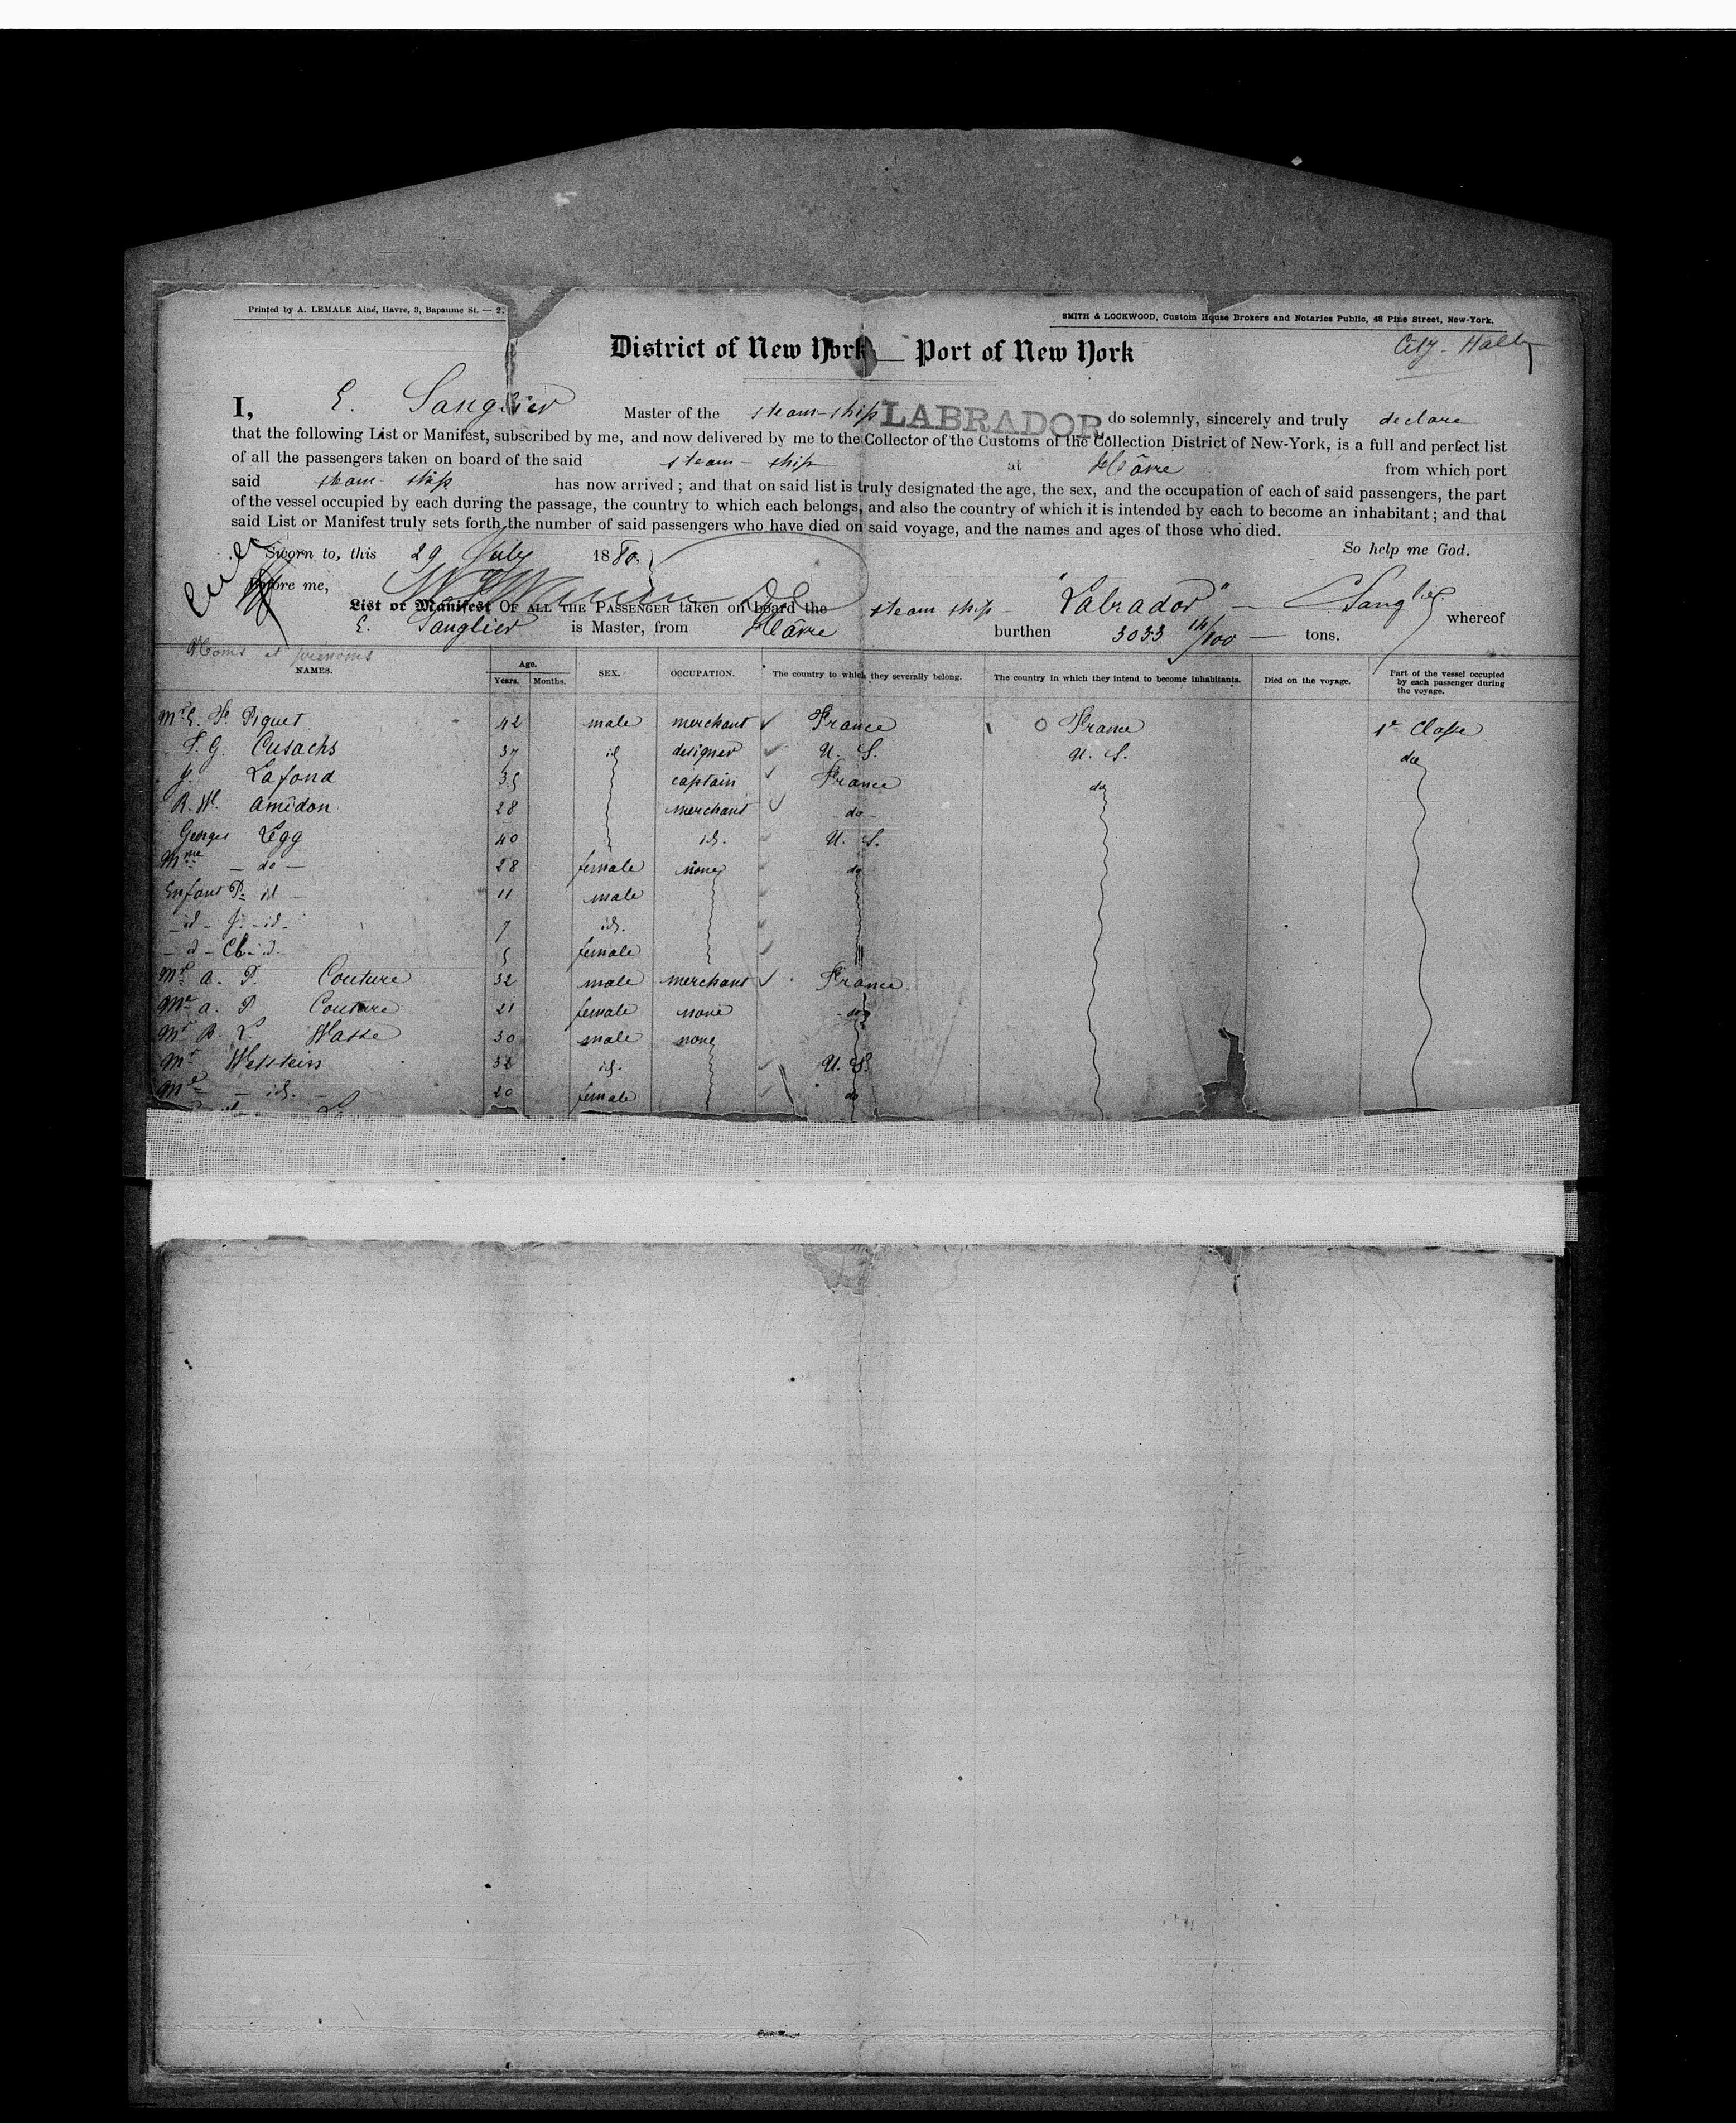 Printed by A. LEMALE Aîné, Havre, 3, Bapaume St. — 2.
SMITH & LOCKWOOD, Custom House Brokers and Notaries Public, 48 Pine Street, New-York.
District of New York — Port of New York
City Hall
I, E. Sanglier Master of the steam-ship LABRADOR do solemnly, sincerely and truly declare
that the following List or Manifest, subscribed by me, and now delivered by me to the Collector of the Customs of the Collection District of New-York, is a full and perfect list
of all the passengers taken on board of the said steam-ship at Hâvre from which port
said steam ship has now arrived ; and that on said list is truly designated the age, the sex, and the occupation of each of said passengers, the part
of the vessel occupied by each during the passage, the country to which each belongs, and also the country of which it is intended by each to become an inhabitant ; and that
said List or Manifest truly sets forth the number of said passengers who have died on said voyage, and the names and ages of those who died.
Sworn to, this 29 July 1880. So help me God.
Before me,
List or Manifest OF ALL THE PASSENGER taken on board the steam ship "Labrador" — Sanglier whereof
E. Sanglier is Master, from Hâvre burthen 3033 14/100 — tons.
Noms et prénoms
NAMES. Age. Years. Months. SEX. OCCUPATION. The country to which they severally belong. The country in which they intend to become inhabitants. Died on the voyage. Part of the vessel occupied by each passenger during the voyage.
Mr E. F. Piguet 42 male merchant France France 1e Classe
S. G. Cusachs 37 id designer U. S. U. S. do
J. Lafond 35 captain France do
R. W. Amidon 28 merchant do
Georges Legg 40 id. U. S.
Mme — do — 28 female none do
Enfant P. id 11 male
id - J. - id - 7 id.
id - Ch - id. 5 female
Mr A. P. Couture 32 male merchant France
Me A. P. Couture 21 female none do
Mr B. L. Wasse 30 male none
Mr Wetstein 32 id. U. S.
Me — id. — 20 female do